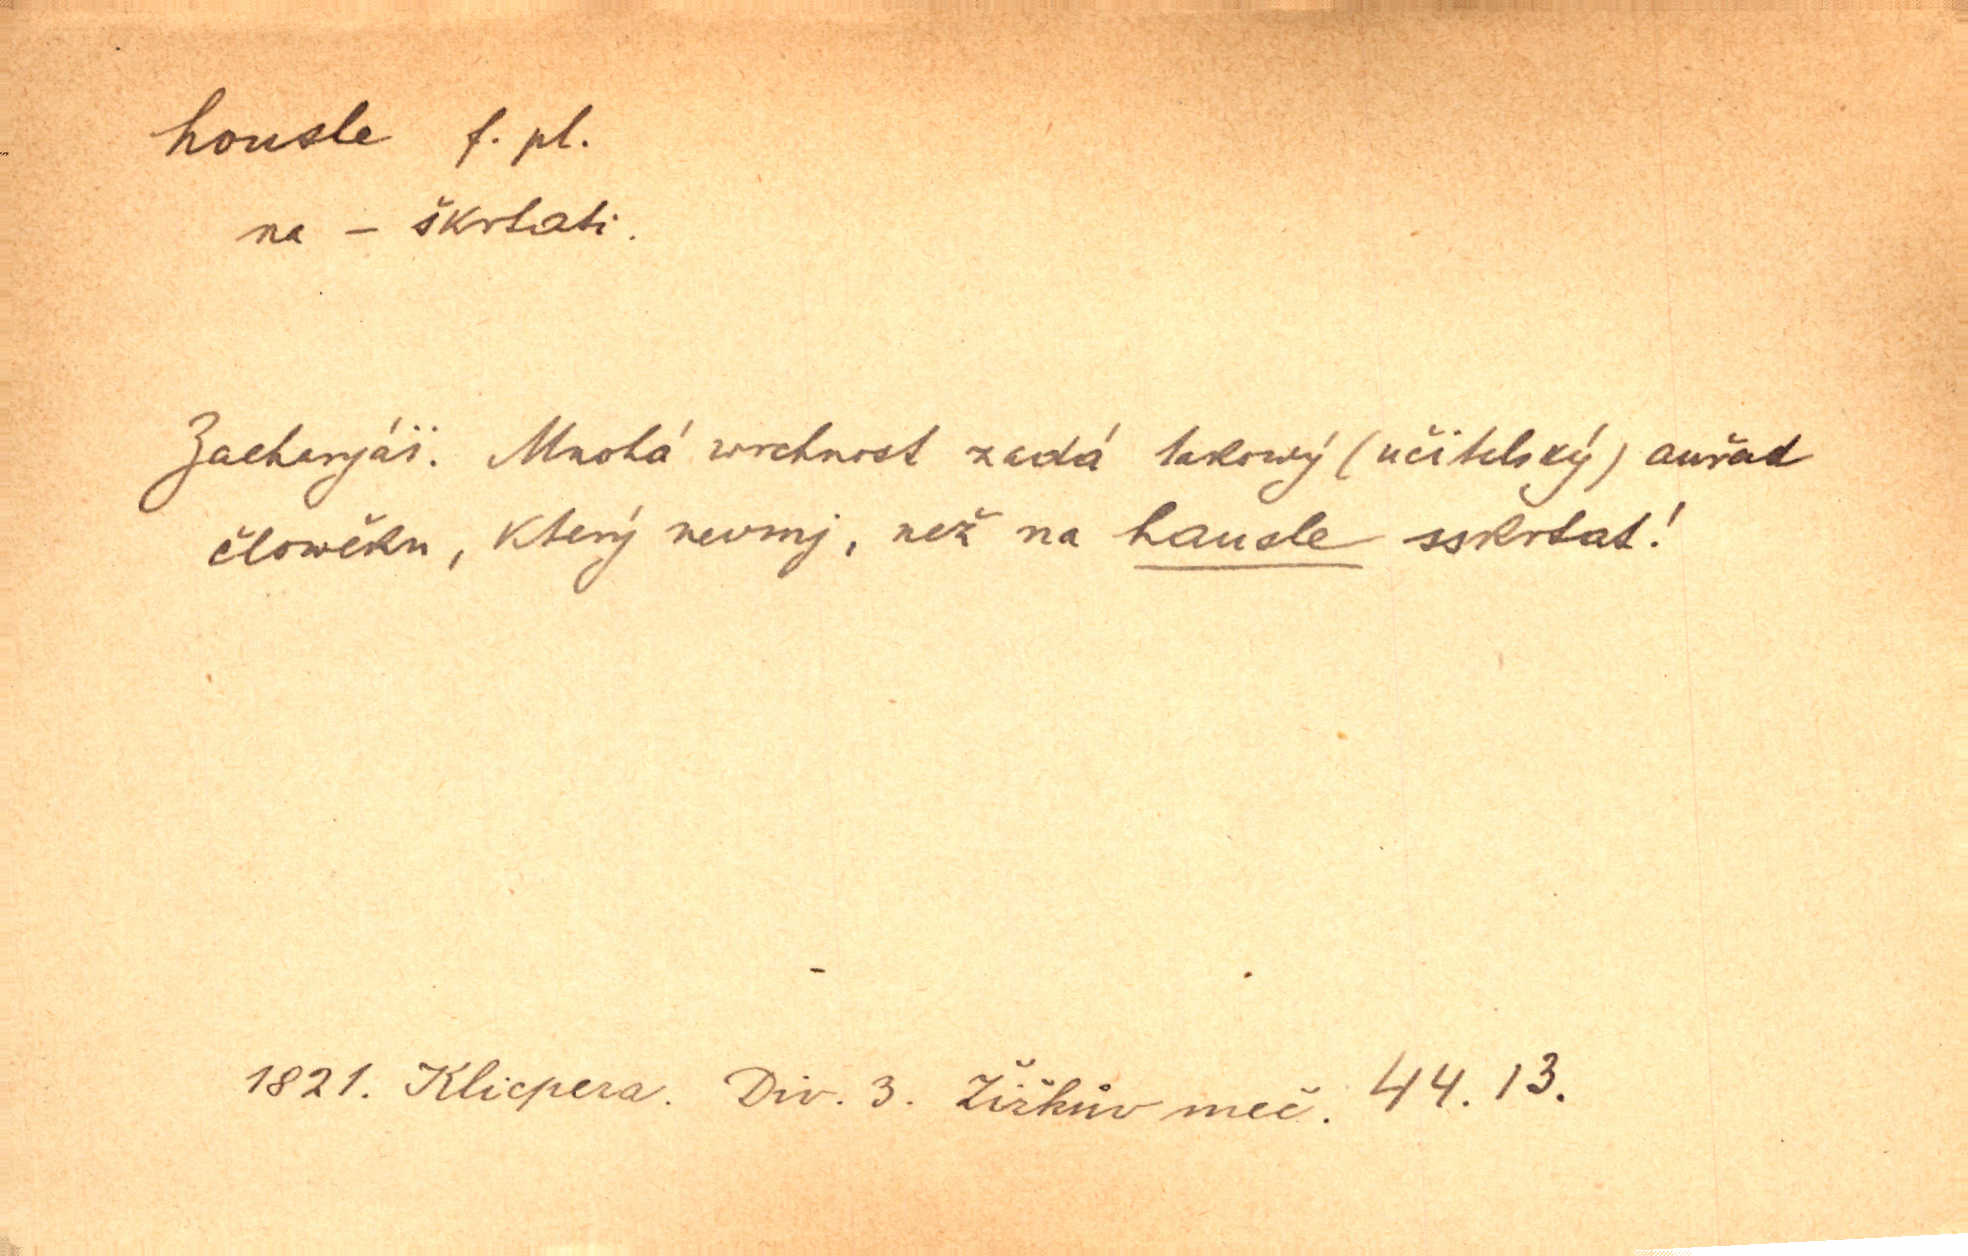 housle f. pl.
na – škrtati.
Zacharyáš. Mnohá wrchnost zadá takowý (učitelský) auřad
člowěku, který neumj, než na hausle sskrtat!
1821. Klicpera. Div. 3. Žižkův meč. 44. 13.